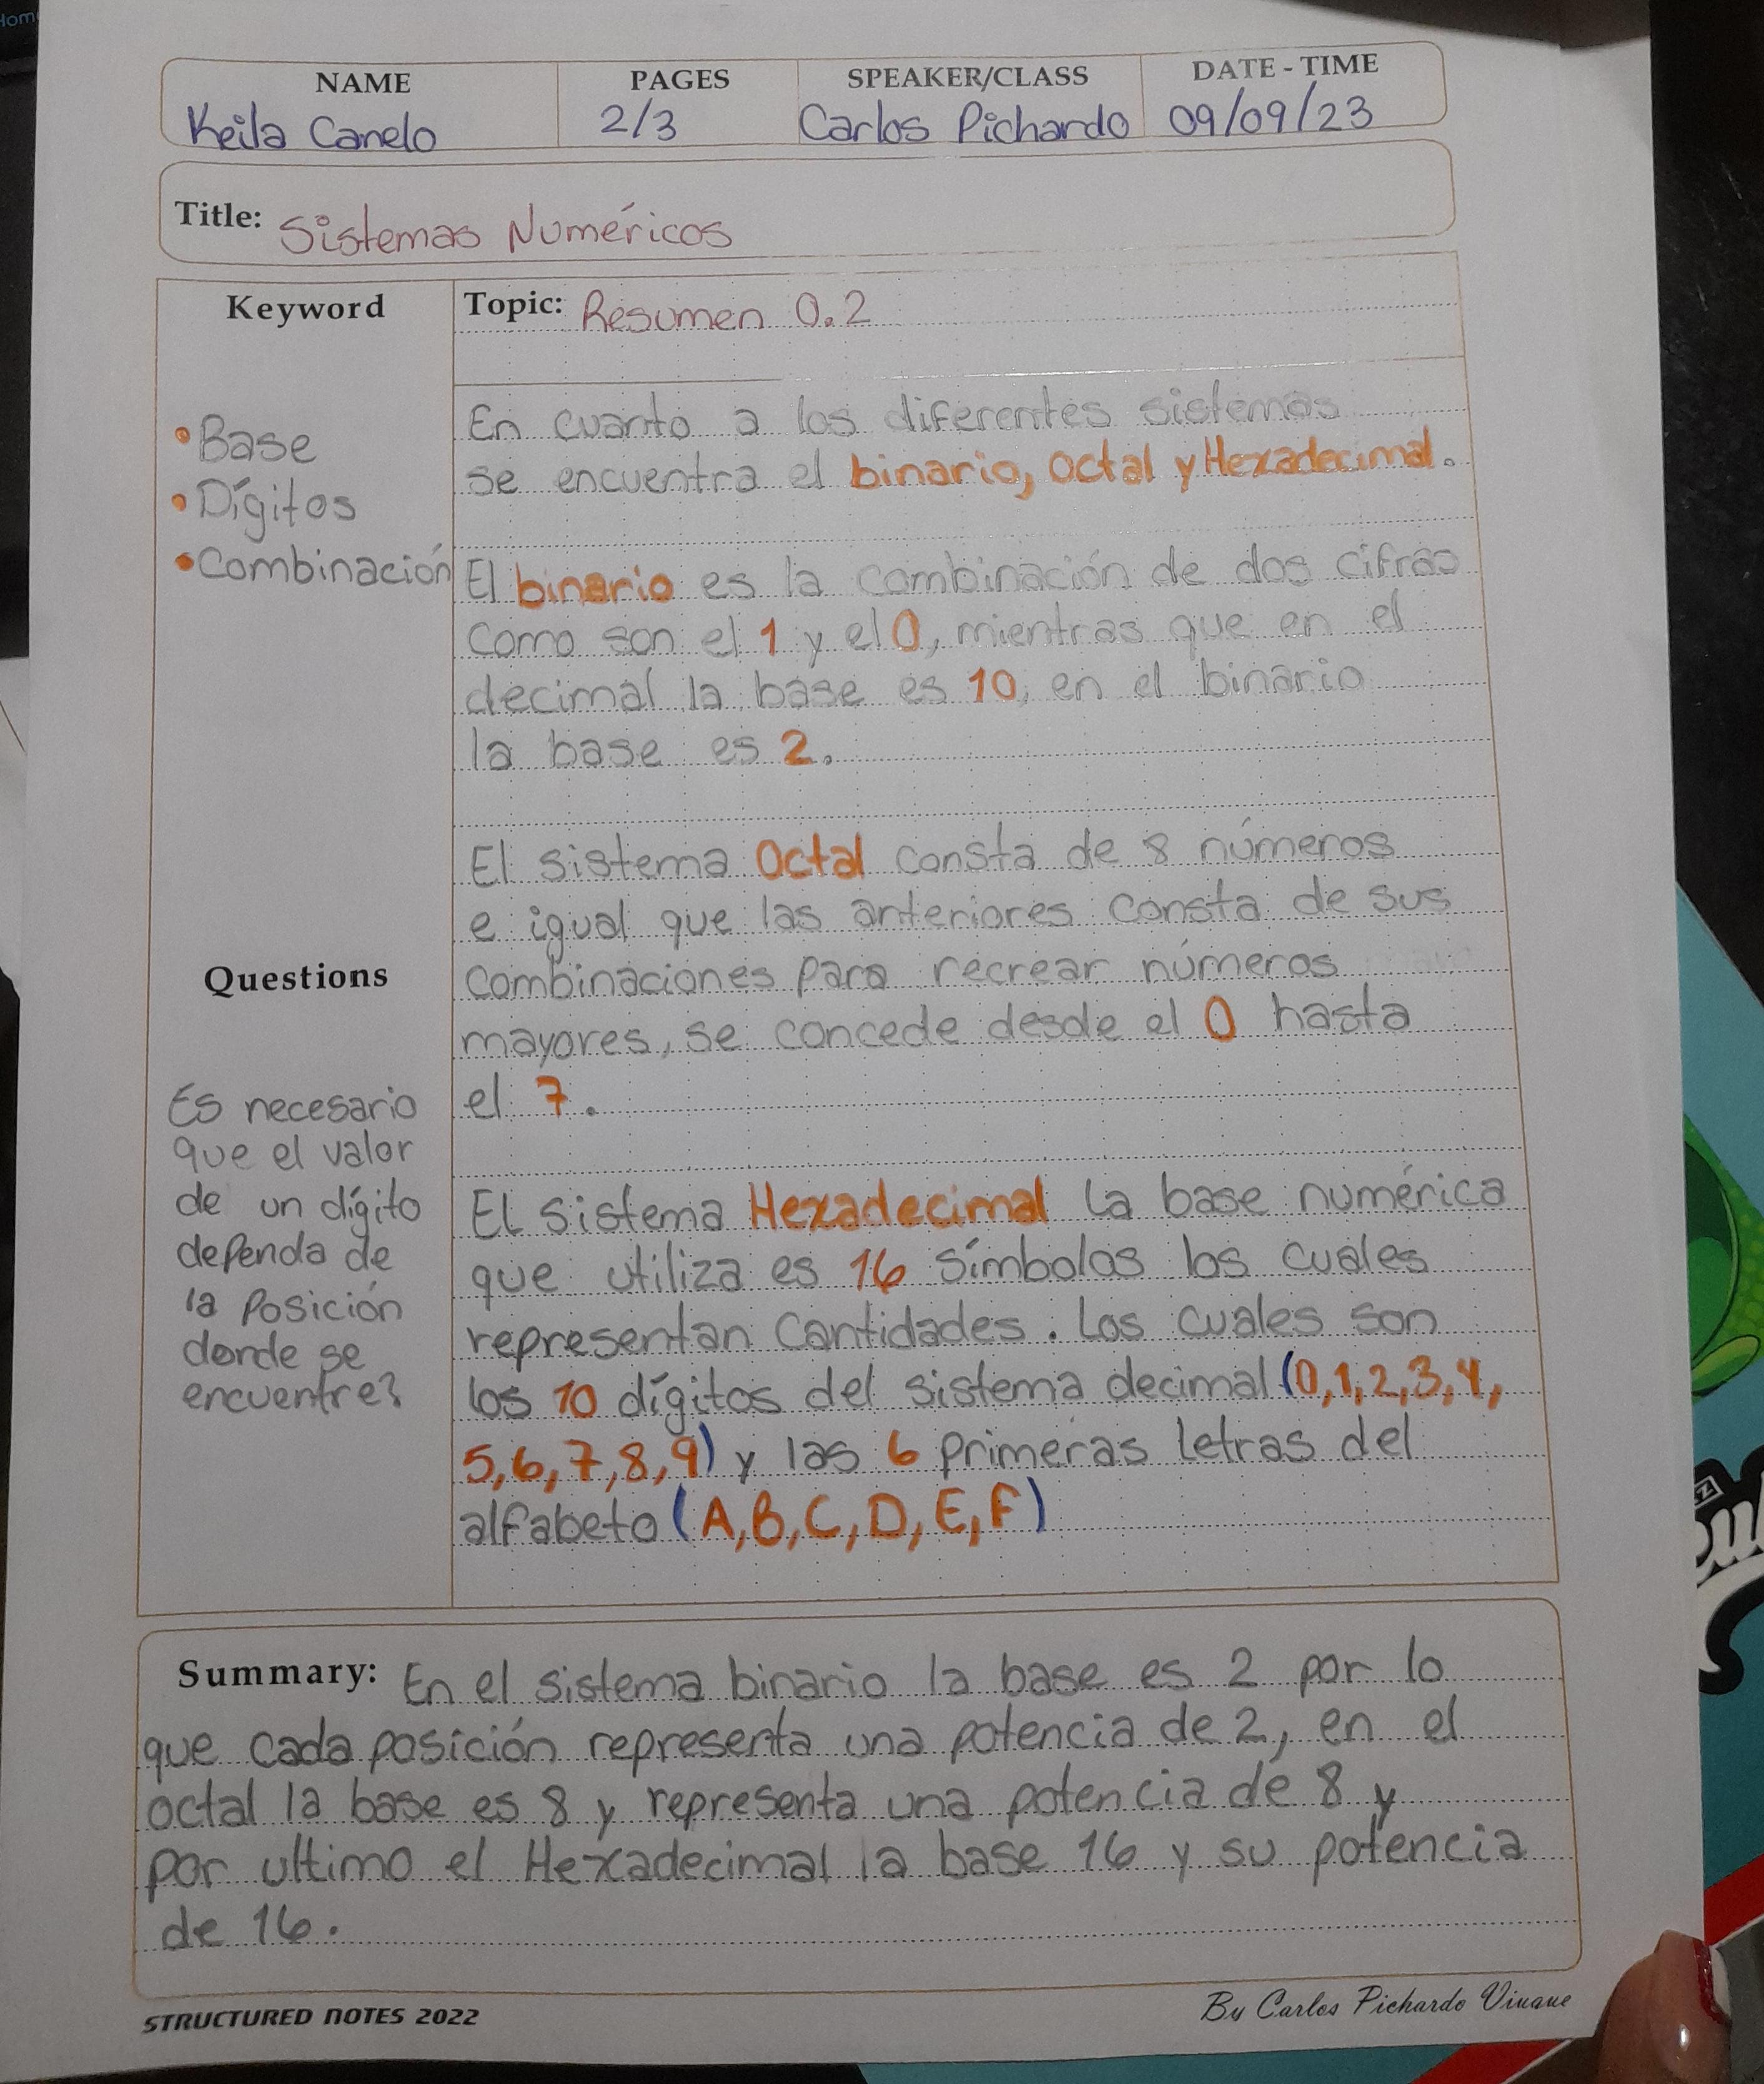 NAME
PAGES
SPEAKER/CLASS
DATE - TIME
Keila Canelo
2/3
Carlos Pichardo
09/09/23
Title: Sistemas Numéricos
Keyword
• Base
• Dígitos
• Combinación
Topic: Resumen 0.2
En cuanto a los diferentes sistemas
se encuentra el binario, Octal y Hexadecimal.
El binario es la combinación de dos cifras
como son el 1 y el 0, mientras que en el
decimal la base es 10, en el binario
la base es 2.
El sistema Octal consta de 8 números
e igual que las anteriores consta de sus
combinaciones para recrear números
mayores, se concede desde el 0 hasta
el 7.
El sistema Hexadecimal la base numérica
que utiliza es 16 símbolos los cuales
representan cantidades. Los cuales son
los 10 dígitos del sistema decimal (0,1,2,3,4,
5,6,7,8,9) y las 6 primeras letras del
alfabeto (A,B,C,D,E,F)
Questions
Es necesario
que el valor
de un dígito
dependa de
la posición
donde se
encuentre?
Summary: En el sistema binario la base es 2 por lo
que cada posición representa una potencia de 2, en el
octal la base es 8 y representa una potencia de 8 y
por ultimo el Hexadecimal la base 16 y su potencia
de 16.
STRUCTURED NOTES 2022
By Carlos Pichardo Viuque